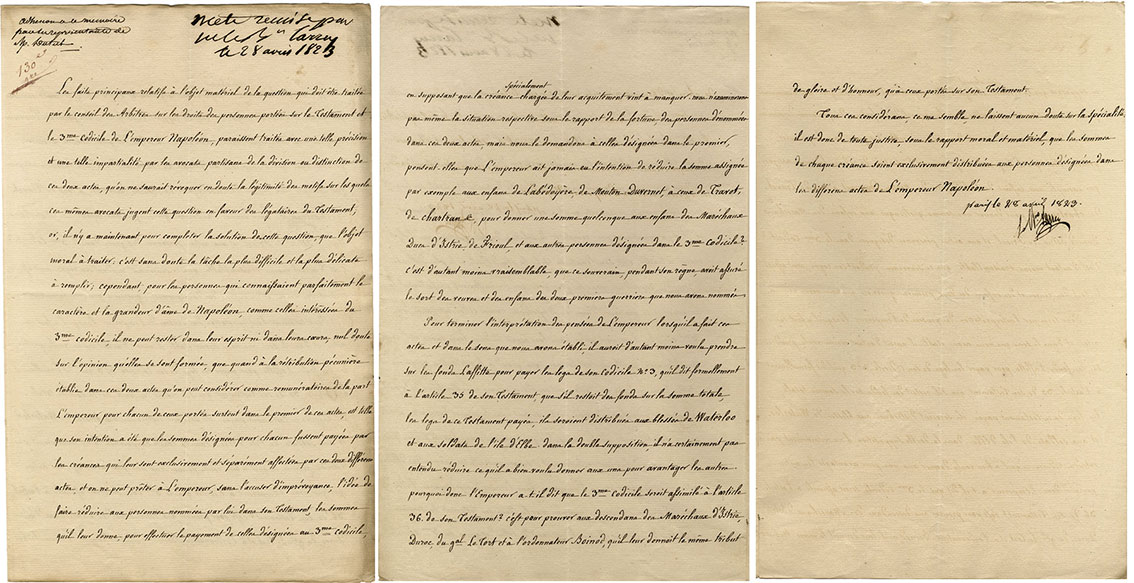 à l'honneur du mémoire
pour les représentants de
130
Note remise par
le Bon Larrey
le 28 avril 1823
Les faits principaux relatifs à l'objet matériel de la question qui doit être traitée
par le conseil des Arbitres sur les droits des personnes portées sur le Testament et
le 3me Codicile de L'empereur Napoléon, paraissent traités avec une telle précision
et une telle impartialité, par les avocats, partisans de la division ou distinction de
ces deux actes, qu'on ne saurait révoquer en doute la légitimité des motifs sur lesquels
ces mêmes avocats jugent cette question en faveur des légataires du Testament;
or, il n'y a maintenant pour completter la solution de cette question, que l'objet
moral à traiter; c'est sans doute la tâche la plus difficile et la plus délicate
à remplir; cependant, pour les personnes qui connaissaient parfaitement le
caractère et la grandeur d'âme de Napoléon, comme celles intéressées du
3me codicile, il ne peut rester dans leur esprit ni dans leurs cœurs, nul doute
sur l'opinion qu'elles se sont formées, que quand à la rétribution pécunière
établie dans ces deux actes qu'on peut considérer comme rémunératoires de la part
L'empereur pour chacun de ceux portés surtout dans le premier de ces actes, est telle
que son intention a été que les sommes désignées pour chacun fussent payées par
les créances qui leur sont exclusivement et séparément affectées par ces deux différens
actes et on ne peut prêter à L'empereur, sans l'accuser d'imprévoyance, l'idée de
faire réduire aux personnes nommées par lui dans son Testament, les sommes
qu'il leur donne pour effectuer le payement de celles désignées au 3me codicile,
spécialement
en supposant que la créance chargée de leur acquitement vint à manquer. nous n'examinerons
pas même la situation respective sous le rapport de la fortune des personnes dénommées
dans ces deux actes, mais nous le demandons à celles désignées dans le premier,
pensent elles que L'empereur ait jamais eu l'intention de réduire la somme assignée
par exemple aux enfans de Labédoyère, de Mouton Duvernet, à ceux de Travot,
de chartran &, pour donner une somme quelconque aux enfans des Maréchaux
Ducs d'Istrie de Frioul et aux autres personnes désignées dans le 3me codicile?
c'est d'autant moins vraisemblable que ce souverain pendant son règne avait assuré
le sort des veuves et des enfans des deux premiers guerriers que nous avons nommés
Pour terminer l'interprétation des pensées de L'empereur lorsqu'il a fait ces
actes et dans le sens que nous avons établi, il auroit d'autant moins voulu prendre
sur les fonds Laffitte pour payer les legs de son Codicile No 3, qu'il dit formellement
à l'article 35 de son Testament, que s'il restoit des fonds sur la somme totale,
les legs de ce Testament payés, ils seroient distribués aux blessés de Waterloo
et aux soldats de l'ile d'Elbe dans la double supposition, il n'a certainement pas
entendu réduire ce qu'il a bien voulu donner aux uns pour avantager les autres
pourquoi donc l'Empereur a-t-il dit que le 3me Codicile seroit assimilé à l'article
36. de son Testament? c'est pour prouver aux descendans des Maréchaux d'Istrie,
Duroc, du gal Le Tort et à l'ordonnateur Boinod, qu'il leur donnoit le même tribut
de gloire et d'honneur, qu'à ceux portés sur son Testament.
Tous ces considérans, ce me semble, ne laissent aucun doute sur la spécialité
il est donc de toute justice, sous le rapport moral et matériel, que les sommes
de chaque créance soient exclusivement distribuées aux personnes désignées dans
les différens actes de L'empereur Napoléon
paris le 28 avril 1823.